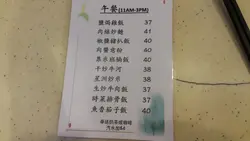 午餐(11AM-3PM)
鹽焗雞飯 37
肉絲炒麵 41
椒鹽豬扒飯 40
肉醬意粉 40
粟米班腩飯 40
干炒牛河 38
星洲炒米 38
生炒牛肉飯 37
時菜排骨飯 37
魚香茄子飯 40